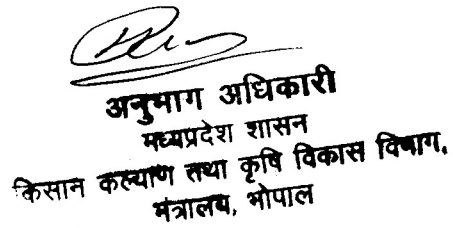 अनुभाग अधिकारी
मध्यप्रदेश शासन
किसान कल्याण तथा कृषि विकास विभाग,
मंत्रालय, भोपाल